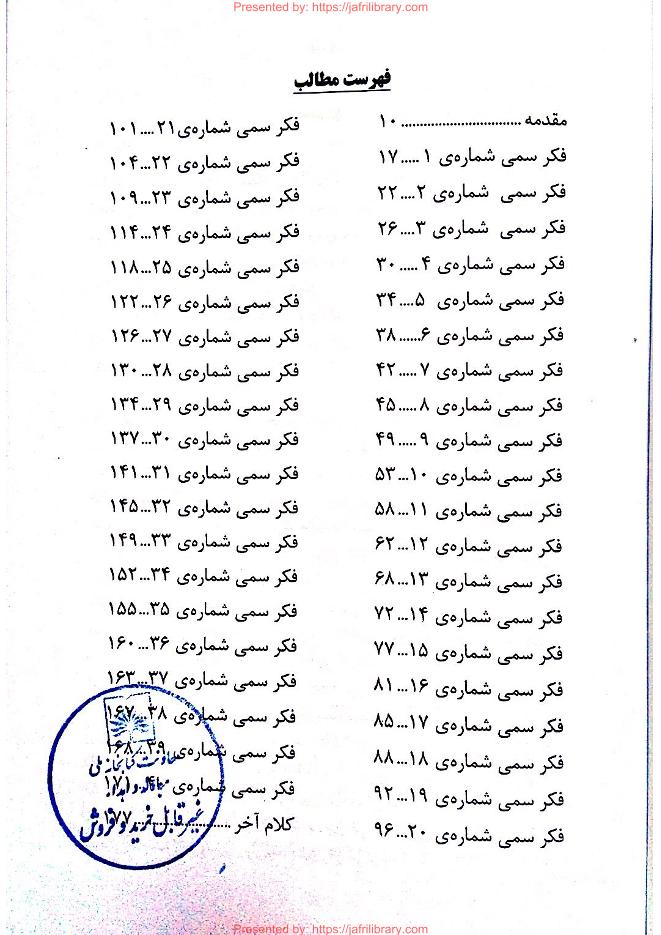 Presented by: https://jafrilibrary.com
فهرست مطالب
مقدمه ................................ ۱۰
فکر سمی شماره‌ی ۱ ..... ۱۷
فکر سمی شماره‌ی ۲.... ۲۲
فکر سمی شماره‌ی ۳.... ۲۶
فکر سمی شماره‌ی ۴ ..... ۳۰
فکر سمی شماره‌ی ۵.... ۳۴
فکر سمی شماره‌ی ۶...... ۳۸
فکر سمی شماره‌ی ۷ ..... ۴۲
فکر سمی شماره‌ی ۸ ..... ۴۵
فکر سمی شماره‌ی ۹ ..... ۴۹
فکر سمی شماره‌ی ۱۰... ۵۳
فکر سمی شماره‌ی ۱۱... ۵۸
فکر سمی شماره‌ی ۱۲... ۶۲
فکر سمی شماره‌ی ۱۳... ۶۸
فکر سمی شماره‌ی ۱۴... ۷۲
فکر سمی شماره‌ی ۱۵... ۷۷
فکر سمی شماره‌ی ۱۶... ۸۱
فکر سمی شماره‌ی ۱۷... ۸۵
فکر سمی شماره‌ی ۱۸... ۸۸
فکر سمی شماره‌ی ۱۹... ۹۲
فکر سمی شماره‌ی ۲۰... ۹۶
فکر سمی شماره‌ی ۲۱.... ۱۰۱
فکر سمی شماره‌ی ۲۲... ۱۰۴
فکر سمی شماره‌ی ۲۳... ۱۰۹
فکر سمی شماره‌ی ۲۴... ۱۱۴
فکر سمی شماره‌ی ۲۵... ۱۱۸
فکر سمی شماره‌ی ۲۶... ۱۲۲
فکر سمی شماره‌ی ۲۷... ۱۲۶
فکر سمی شماره‌ی ۲۸... ۱۳۰
فکر سمی شماره‌ی ۲۹... ۱۳۴
فکر سمی شماره‌ی ۳۰... ۱۳۷
فکر سمی شماره‌ی ۳۱... ۱۴۱
فکر سمی شماره‌ی ۳۲... ۱۴۵
فکر سمی شماره‌ی ۳۳... ۱۴۹
فکر سمی شماره‌ی ۳۴... ۱۵۲
فکر سمی شماره‌ی ۳۵... ۱۵۵
فکر سمی شماره‌ی ۳۶... ۱۶۰
فکر سمی شماره‌ی ۳۷... ۱۶۳
فکر سمی شماره‌ی ۳۸... ۱۶۷
فکر سمی شماره‌ی ۳۹... ۱۶۸
فکر سمی شماره‌ی ۴۰... ۱۷۱
کلام آخر ......................... ۱۷۷
معاونت کتابخانه ملی
مبادله و اهدا
غیر قابل خرید و فروش
Presented by: https://jafrilibrary.com